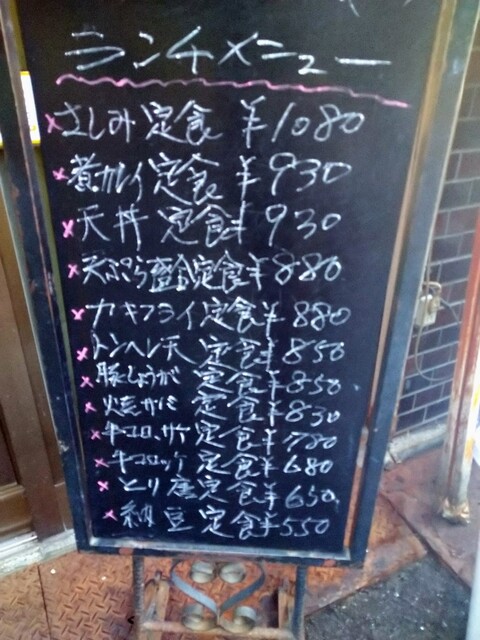 ランチメニュー
さしみ定食 ¥1080
煮カレイ定食 ¥930
天丼 定食 ¥930
天ぷら 定食 ¥880
カキフライ定食 ¥880
トンヘレ天 定食 ¥850
豚しょうが 定食 ¥850
定食 ¥830
定食 ¥780
牛コロッケ 定食 ¥680
とり 定食 ¥650
納豆定食 ¥550